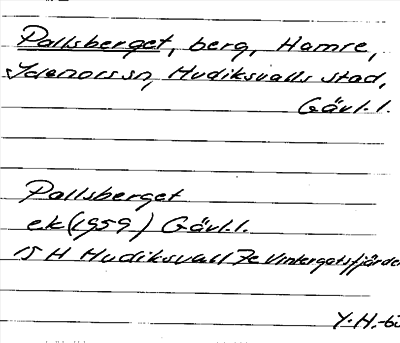 Pallsberget, berg, Hamre,
Idenors sn, Hudiksvalls stad,
Gävl.l.
Pallsberget
ek (1959) Gävl.l.
15 H Hudiksvall 7e Vintergatsfjärden
Y.H.-63